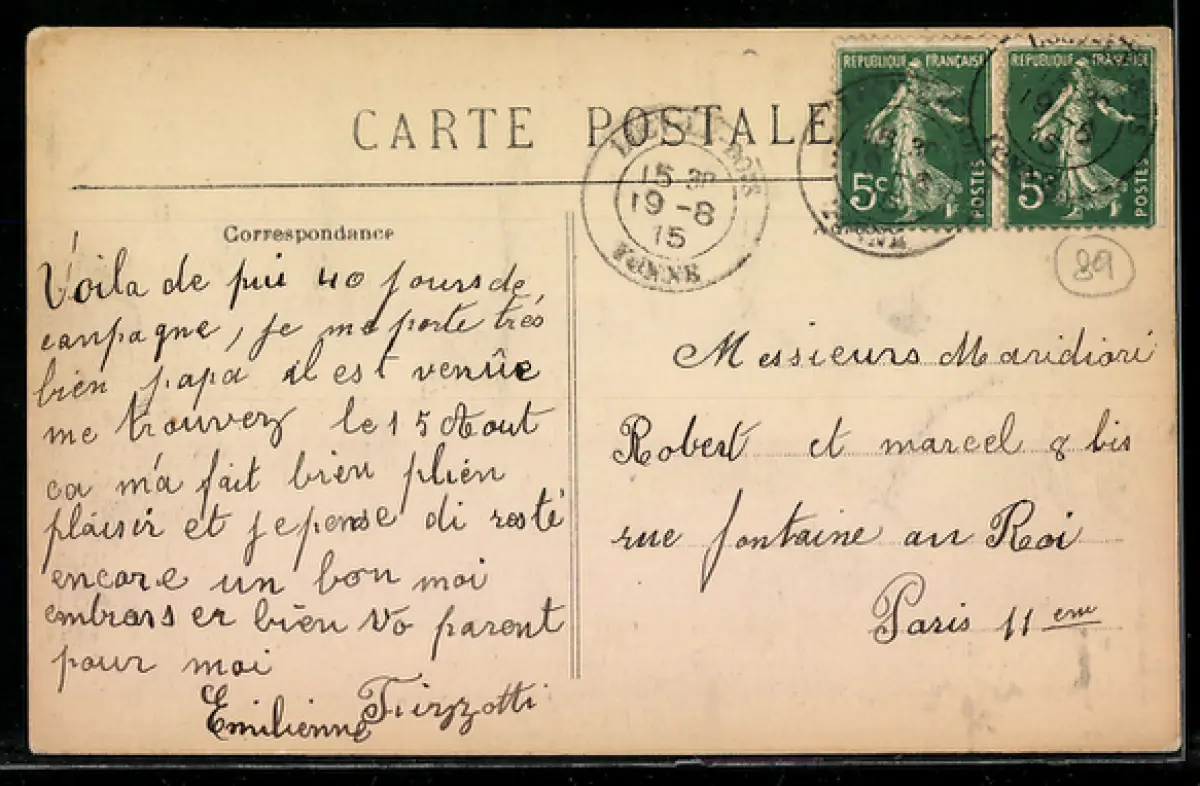 CARTE POSTALE
REPUBLIQUE FRANÇAISE
5c
POSTES
REPUBLIQUE FRANÇAISE
5c
POSTES
15 30
19-8
15
YONNE
89
Correspondance
Voila de pui 40 jours de
canpagne, je me porte très
bien papa il est venûe
me trouvez le 15 Aout
ca m'a fait bien plien
plaisir et je pense di resté
encore un bon moi
embrass er bien vo parent
pour moi
Emilienne
Messieurs
Robert et marcel 8 bis
rue fontaine au Roi
Paris 11 eme